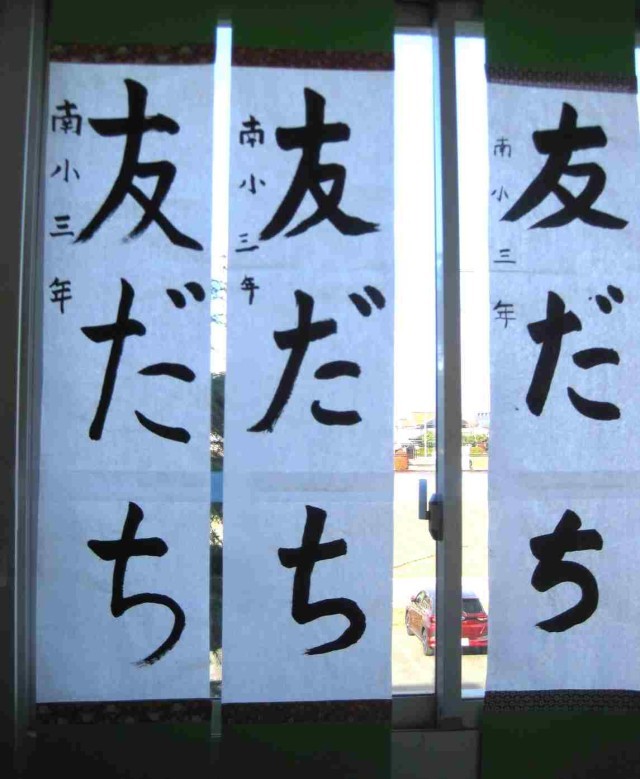 友だち
南小三年
友だち
南小三年
友だち
南小三年